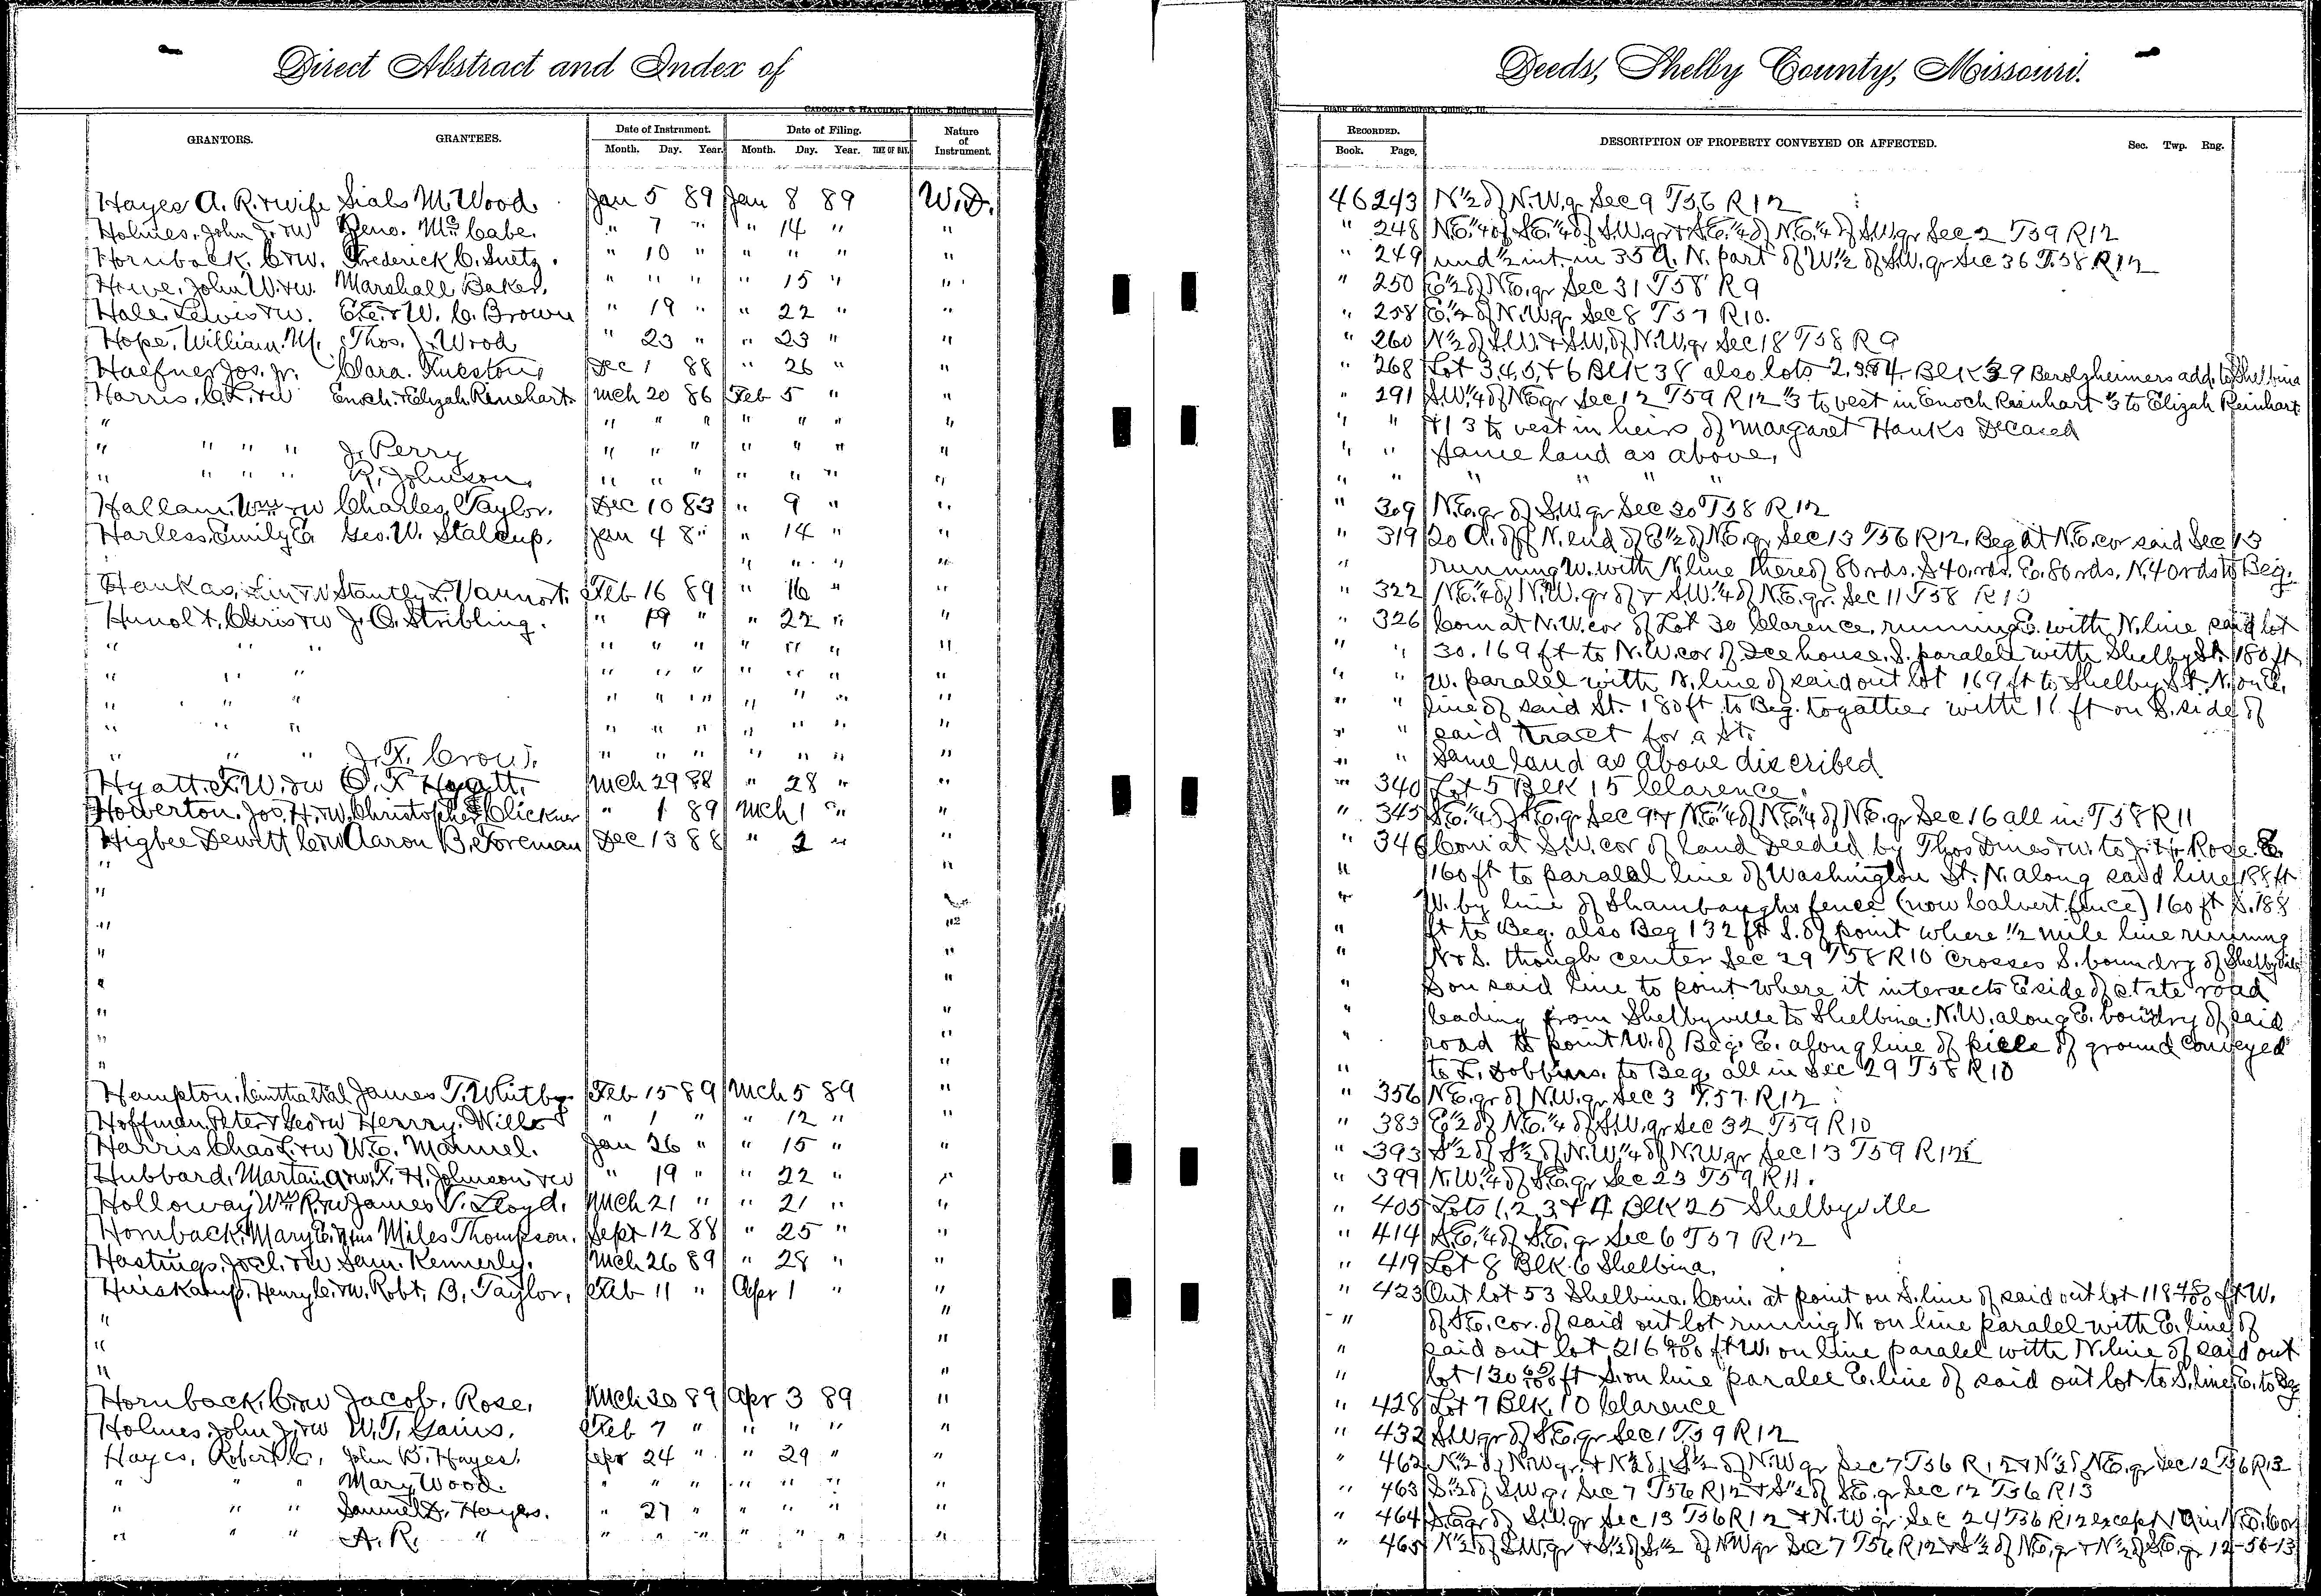 Direct Abstract and Index of Deeds, Shelby County, Missouri.
CADOGAN & HATCHER, Printers, Binders and Blank Book Manufacturers, Quincy, Ill.
GRANTORS. GRANTEES. Date of Instrument. Date of Filing. Nature of Instrument. RECORDED. DESCRIPTION OF PROPERTY CONVEYED OR AFFECTED. Sec. Twp. Rng.
Month. Day. Year. Month. Day. Year. TIME OF DAY. Book. Page.
Hayes A. R. & wife Sials M. Wood. Jan 5 89 Jan 8 89 W.D. 46 243 N ½ of N.W.qr Sec 9 T56 R12
Holmes, John J. & w Reno. Mc Cabe. " 7 " " 14 " " " 248 N.E.¼ of S.E.¼ of S.W.qr & S.E.¼ of N.E.¼ of S.W.qr Sec 2 T59 R12
Hornback. C. & w. Frederick C. Suetz. " 10 " " " " " " 249 und ½ int. in 35 A. N. part of W.½ of S.W. qr Sec 36 T.58 R12
Howe, John W. & w. Marshall Baker. " " " " 15 " " " 250 E ½ of N.E.qr Sec 31 T58 R9
Hale. Lewis & w. W. C. Brown " 19 " " 22 " " " 258 E.½ of N.W.qr Sec 8 T57 R10.
Hope, William. M. Thos. J. Wood " 23 " " 23 " " " 260 N ½ of S.W. & S.W. of N.W.qr Sec 18 T58 R9
Haefner Jos. Jr. Clara. Dec 1 88 " 26 " " " 268 Lot 3,4,5, & 6 Blk 38 also lots 2,3,&4 Blk 39 Berolzheimers add. to Shelbina
Harris, C. L. & w Enoch. & Elizah Rinehart Mch 20 86 Feb 5 " " " 291 S.W.¼ of N.E.qr Sec 12 T59 R12 ⅓ to vest in Enoch Reinhart ⅓ to Elizah Reinhart
" " " " " " " " " " & 1/3 to vest in heirs of Margaret Hanks Decased
" " " " J. Perry " " " " " " " " " Same land as above.
" " " " R. Johnson. " " " " " " " " " " " "
Hallam. Wm & w Charles Taylor. Dec 10 83 " 9 " " " 309 N.E.qr of S.W.qr Sec 30 T58 R12
Harless, Emily E. Geo. W. Stalcup. Jan 4 8" " 14 " " " 319 20 A. off N. end of E ½ of N.E.qr Sec 13 T56 R12. Beg at N.E. cor said Sec 13
" " " " " running W. with N line thereof 80 rds. S 40. rds. E. 80 rds. N. 40 rds to Beg.
Stantly L. Vannort. Feb 16 89 " 16 " " " 322 N.E.¼ of N.W. qr of & S.W.¼ of N.E. qr. Sec 11 T58 R10
Hunolt, Chris & w J. O. Stribling. " 19 " " 22 " " " 326 Com at N.W. cor of Lot 30 Clarence, running E. with N. line said lot
" " " " " " " " " " " " 30. 169 ft to N.W. cor of Ice house. S. paralell with Shelby St. 180 ft
" " " " " " " " " " " " W. paralel with N. line of said out lot 169 ft to Shelby St. N. on E.
" " " " " " " " " " " " line of said St. 180 ft to Beg. togather with 11 ft on S. side of
" " " " " " " " " " " " said tract for a st.
" " " J. T. " " " " " " " " " Same land as above discribed
Hyatt. F. W. & w O. F. Hyatt. Mch 29 88 " 28 " " " 340 Lot 5 Blk 15 Clarence.
Howerton. Jos. H. & w. Christopher Clickner " 1 89 Mch 1 " " " 345 S.E.¼ of S.E.qr Sec 9 & N.E.¼ of N.E.¼ of N.E.qr Sec 16 all in T58 R11
Higbee Dewitt C. & w Aaron B. Foreman Dec 13 88 " 2 " " " 346 Com at S.W. cor of land Deeded by Thos Dines & w. to Rose. E.
" " " 160 ft to paralal line of Washington St. N. along said line 188 ft
" " " W. by line of Shambaughs fence (now Calvert fence) 160 ft S. 188
" " " ft to Beg. also Beg 132 ft S. of point where ½ mile line running
" " " N & S. though center Sec 29 T58 R10 crosses S. boundry of Shelbyville
" " " S on said line to point where it intersects E side of state road
" " " leading from Shelbyville to Shelbina. N.W. along E. boundry of said
" " " road to point W. of Beg. E. along line of piece of ground conveyed
" " " to L. Dobbins. to Beg. all in Sec 29 T58 R10
Hampton, Cintha et al James T. Whitby Feb 15 89 Mch 5 89 " " 356 N.E. qr of N.W. qr Sec 3 T.57. R12
Hoffman, Peter & Geo & w Henry. Wills " 1 " " 12 " " " 383 E ½ of N.E.¼ of S.W.qr Sec 32 T59 R10
Harris Chas L. & w W. E. Manuel. Jan 26 " " 15 " " " 393 S ½ of S ½ of N.W.¼ of N.W.qr Sec 13 T59 R12
Hubbard, Martain A & w. T. H. Johnson & w " 19 " " 22 " " " 399 N.W.¼ of S.E.qr Sec 23 T59 R11.
Holloway Wm R. & w James T. Lloyd. Mch 21 " " 21 " " " 405 Lots 1,2,3, & 4 Blk 25 Shelbyville
Hornback, Mary E. & hus Miles Thompson. Sept 12 88 " 25 " " " 414 S.E.¼ of S.E. qr Sec 6 T57 R12
Hastings, Joel. & w Sam. Kennerly. Mch 26 89 " 28 " " " 419 Lot 8 Blk. 6 Shelbina.
Huiskamp, Henry C. & w. Robt. B. Taylor, Feb 11 " Apr 1 " " " 423 Out lot 53 Shelbina. Com. at point on S. line of said out lot 118 ft W.
" " " of S.E. cor. of said out lot runing N. on line paralel with E. line of
" " " said out lot 216 ft W. on line paralel with N. line of said out
" " " lot 130 ft S. on line paralel E. line of said out lot to S. line E. to Beg
Hornback, C. & w Jacob. Rose. Mch 30 89 Apr 3 89 " " 428 Lot 7 Blk. 10 Clarence
Holmes, John J. & w W. T. Gains. Feb 7 " " " " " " 432 S.W qr of S.E. qr Sec 1 T.59 R12
Hayes, Robert C. John B. Hayes. Apr 24 " " 29 " " " 462 N ½ of N.W qr. & N ½ of S ½ of N.W qr Sec 7 T56 R12 & N ½ of N.E. qr Sec 12 T56 R13
" " " Mary Wood. " " " " " " " " 463 S ½ of S.W. qr Sec 7 T56 R12 & S ½ of S.E. qr Sec 12 T56 R13
" " " Samuel D. Hayes. " 27 " " " " " " 464 S.E.qr of S.W.qr Sec 13 T56 R12 & N.W qr Sec 24 T56 R12 except 1 A in N.E. Cor
" " " A. R. " " " " " " " " " 465 N ½ of S.W.qr & S ½ of S ½ of N.W qr Sec 7 T56 R12 & S ½ of N.E. qr & N ½ of S.E. qr 12-56-13